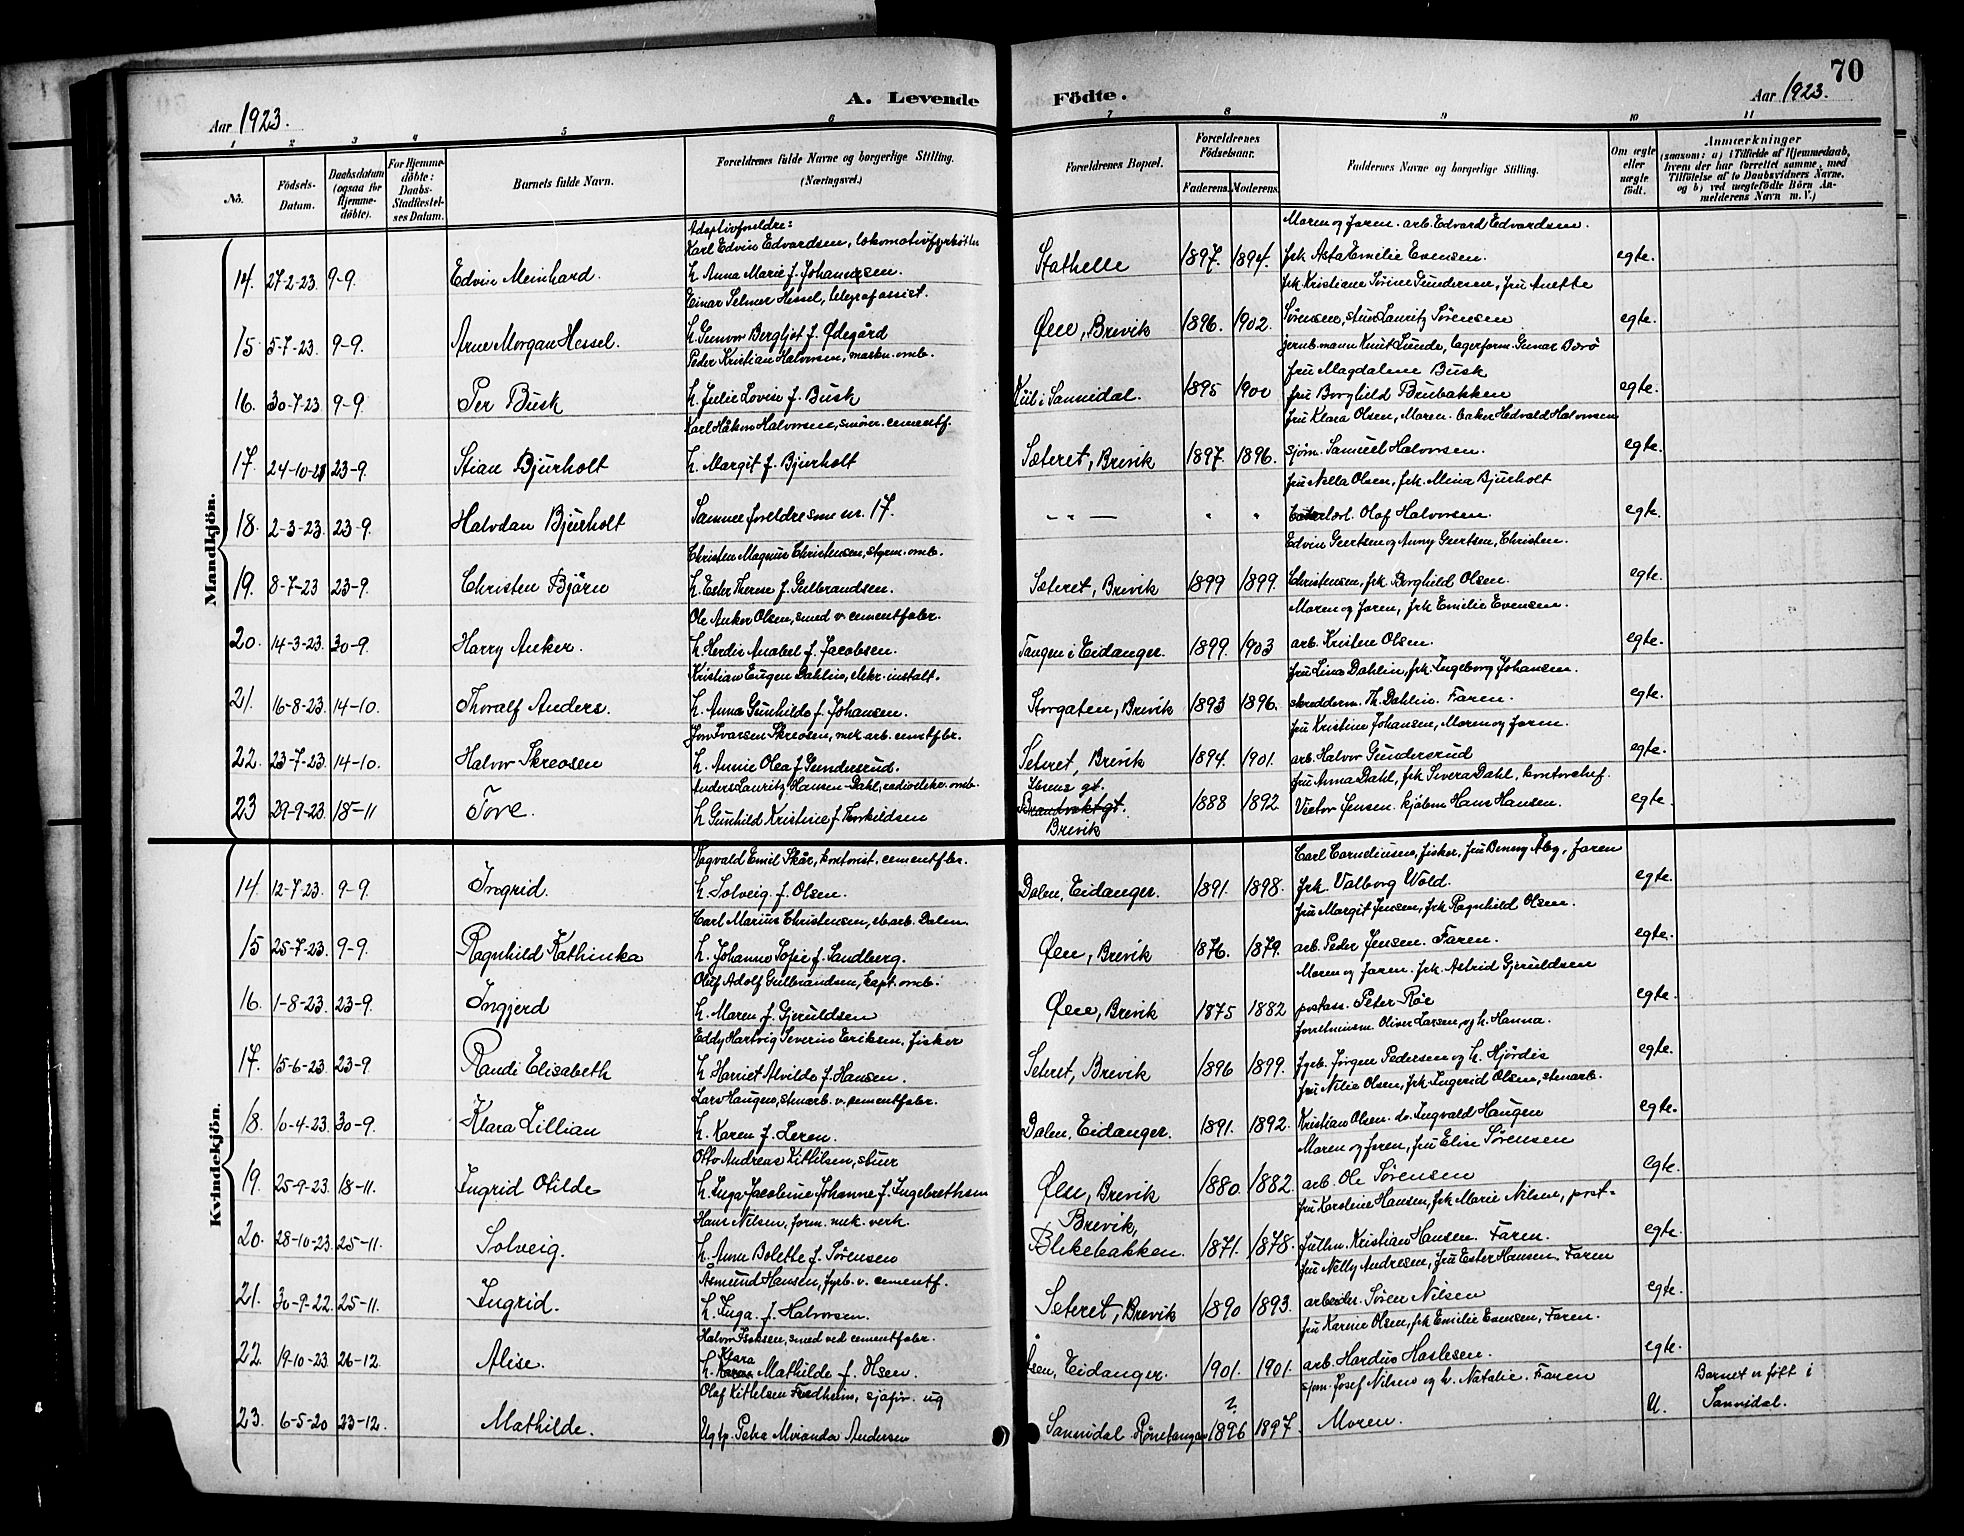 70
A. Levende Födte.
Aar 1923.
Aar 1923.
1 2 3 4 5 6 7 8 9 10 11
No.
Födsels-Datum.
Daabsdatum (ogsaa for Hjemme-døbte).
For Hjemme-döbte: Daabs-Stadfæstel-ses Datum.
Barnets fulde Navn.
Forældrenes fulde Navne og borgerlige Stilling. (Næringsvei.)
Forældrenes Bopæl.
Forældrenes Födselsaar.
Faderens. Moderens.
Faddernes Navne og borgerlige Stilling.
Om ægte eller uægte födt.
Anmærkninger
(saasom: a) i Tilfælde af Hjemmedaab, hvem der har forrettet samme, med Tilföielse af to Daabsvidners Navne, og b) ved uegtefödte Börn An-melderens Navn m. V.)
Mandkjön.
Adoptivforeldre:
Karl Edvin Edvardsen, lokomotivfyrbøter
Moren og faren. arb. Edvard Edvardsen.
14. 27-2-23. 9-9. Edvin Meinhard. h. Anna Marie f. Johannesen. Stathelle 1897. 1894. frk Asta Emilie Evensen. egte.
Einar Selmer Hessel, telegrafassist. frk Kristiane Sørine Gundersen, fru Anette
15 5-7-23. 9-9. Arne Morgan Hessel. h. Gunvor Bergljot f. Ødegård Øen, Brevik 1896. 1902. Sørensen, stuer Lauritz Sørensen egte.
Peder Kristian Halvorsen, maskn. omb. jernb.mann Knut Lunde, lagerform. Gunar Borø
fru Magdalene Busk
16. 30-7-23 9-9. Per Busk h. Julie Lovise f. Busk Kiil i Sannidal. 1895 1900 fru Borghild Brubakken egte.
Karl Håkon Halvorsen, smører. cementf. fru Klara Olsen, Moren. baker Hedvald Halvorsen
17. 24-10-21 23-9. Stian Bjurholt h. Margit f. Bjurholt Sæteret, Brevik 1897. 1896. sjøm. Samuel Halvorsen. egte.
fru Nella Olsen, frk. Mina Bjurholt
18. 2-3-23. 23-9. Halvdan Bjurholt Samme foreldre som nr. 17. — " — " " Olaf Halvorsen. egte.
Christen Magnus Christensen, styrm. omb. Edvin Geertsen og Anny Geertsen, Christen
19. 8-7-23 23-9. Christen Bjørn h. Ester Therese f. Gulbrandsen. Sæteret, Brevik 1899 1899. Christensen, frk Borghild Olsen. egte.
Ole Anker Olsen, smed v. cementfabr. Moren og faren, frk Emilie Evensen.
20. 14-3-23. 30-9. Harry Anker. h. Herdis Anabel f. Jacobsen. Tangen i Eidanger. 1899. 1903 arb. Kristen Olsen. egte.
Kristian Eugen Dahlin, elekr. instalt. fru Lina Dahlin, frk. Ingeborg Johansen.
21. 16-8-23. 14-10. Thoralf Anders. h. Anna Gunhilda f. Johansen. Storgaten, Brevik 1893 1896. skredderm. Th. Dahlin. Faren. egte.
Jon Ivarsen Skreosen, mek arb. cemtfbr. fru Kristine Johansen, Moren og faren.
22. 23-7-23. 14-10. Halvor Skreosen h. Annie Olea f. Gundersrud. Seteret, Brevik 1894. 1901. arb. Halvor Gundersrud egte.
Anders Lauritz Hansen-Dahl, radiotelev. omb. Strens gt. fru Anna Dahl, frk Sivera Dahl, kontorchef
23 29-9-23. 18-11 Tore. h Gunhild Kristine f Torkildsen Brandvaktgt. Brevik 1888 1892 Victor Jensen. kjøbm Hans Hansen. egte.
Kvindekjön.
Vagvald Emil Skår, kontorist. cementfbr. Carl Corneliusen, fisker, fru Benny Aby, faren
14. 12-7-23. 9-9. Ingrid. h. Solveig. f. Olsen. Dalen, Eidanger. 1891. 1898. frk. Valborg Wold. egte.
Carl Marius Christensen, stbarb. Dalen. fru Margit Jensen, frk Ragnhild Olsen.
15 25-7-23. 9-9. Ragnhild Kathinka h. Johanne Sofie f. Sandberg. Øen, Brevik 1876. 1879. arb. Peder Jensen. Faren. egte.
Oluf Adolf Gulbrandsen, kapt. omb. Moren og faren. frk. Astrid Gjeruldsen
16. 1-8-23. 23-9. Ingjerd h. Maren f. Gjeruldsen Øen, Brevik 1875 1882 postass. Peter Røe egte.
Eddy Hartvig Severin Eriksen, fisker forretninsm. Oliver Larsen, og h. Hanna.
17. 15-6-23. 23-9. Randi Elisabeth h Harriet Alvilde f. Hansen. Seteret, Brevik 1896 1899. fyrb. Jørgen Pedersen og h. Hjørdis egte.
Lars Haugen, stenarb. v. cementfabr. fru Nelie Olsen, frk Ingerid Olsen, stenarb.
18. 10-4-23. 30-9. Klara Lillian h. Karen f. Leren. Dalen, Eidanger. 1891. 1892. Kristian Olsen. do. Ingvald Haugen egte.
Otto Andreas Kittilsen, stuer Moren og faren, fru Elin Sørensen
19. 25-9-23. 18-11. Ingrid Otilde h. Inga Jacobine Johanne f. Ingebrethsen Øen, Brevik 1880. 1882. arb. Ole Sørensen egte.
Hans Nilsen, form. mek. verk. fru Karoline Hansen, frk Marie Nilsen, post-
20. 28-10-23. 25-11. Solveig. h. Anna Bolette f. Sørensen Brevik, Blekebakken. 1871. 1878. fullm. Kristian Hansen. Faren. egte.
Asmund Hansen, fyrb. v. cementf. fru Nelly Andresen, fru Ester Hansen. Faren
21. 30-9-22. 25-11. Ingrid. h. Inga. f. Halvorsen. Seteret, Brevik 1890 1893. arbeider. Søren Nilsen egte.
Halvor Isaksen, smed ved cementfabr. fru Karine Olsen, frk Emilie Evensen, Faren.
22. 19-10-23. 26-12. Alise. h. Klara Mathilde f. Olsen. Åsen, Eidanger. 1901. 1901. arb. Hardus Haslesen. egte.
Olaf Kittelsen Fredheim, sjafør. ug ? sjøm. Josef Nilsen og h. Natalie. Faren Barnet er født i
23. 6-5-20 23-12. Mathilde. Ug tp. Petra Miranda Andersen Sannidal Rønetangen 1896 1897. Moren. U. Sannidal.